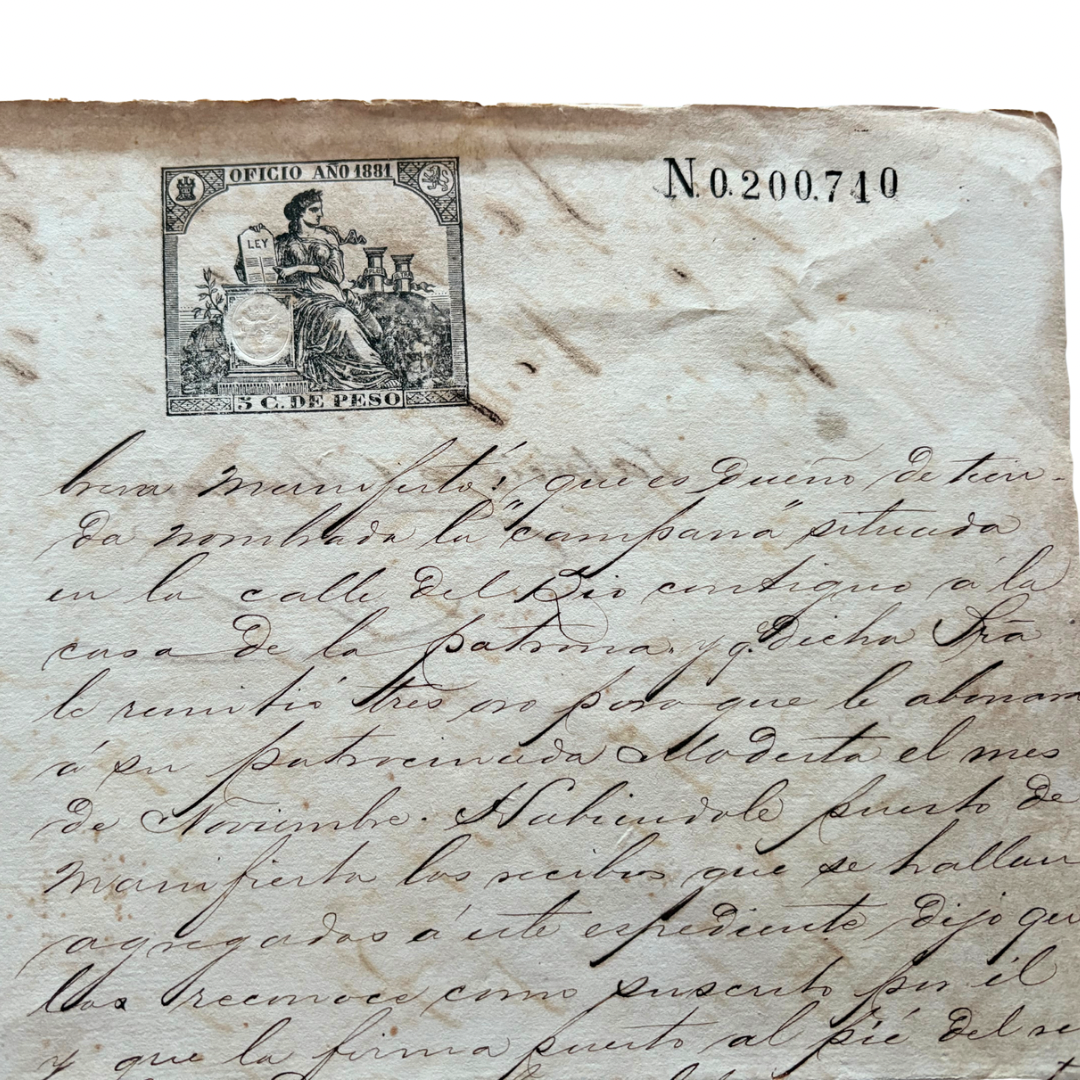 OFICIO AÑO 1881
N. 0.200.710
LEY
5 C. DE PESO
manifestó: que es dueño de tien-
da nombrada la "campana" situada
en la calle del Rio contiguo á la
casa de la patrona. y q.e dicha Sra
le remitió tres oro para que le abonara
á su patrocinada Modesta el mes
de Noviembre. Habiendole puesto de
manifiesto los recibos que se hallan
agregados á este espediente dijo que
los reconoce como suscrito por él
y que la firma puesto al pié del re